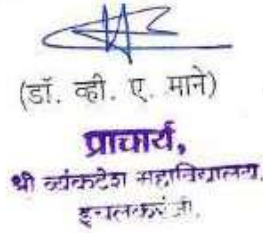 (डॉ. व्ही. ए. माने)
प्राचार्य,
श्री व्यंकटेश महाविद्यालय,
इचलकरंजी.